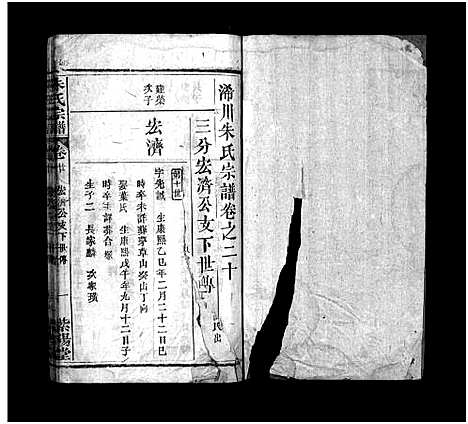 浠川朱氏宗譜卷之二十
三分宏濟公支下世傳
氏出
建榮
次子
宏濟
第十世
字先誠 生康熙乙巳年二月二十二日巳
時卒未詳葬茅草山癸山丁向
娶葉氏 生康熙戊午年九月十二日子
時卒未詳葬合塚
生子二 長家麟 次家璜
朱氏宗譜
卷二十
宏濟公支下世傳
一
紫陽堂